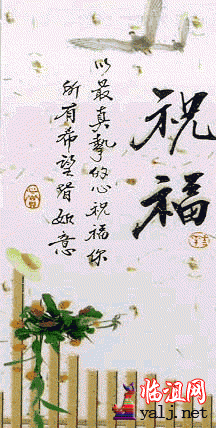 祝福
以最真摯的心祝福你
所有希望皆如意
临沮网
yalj.net